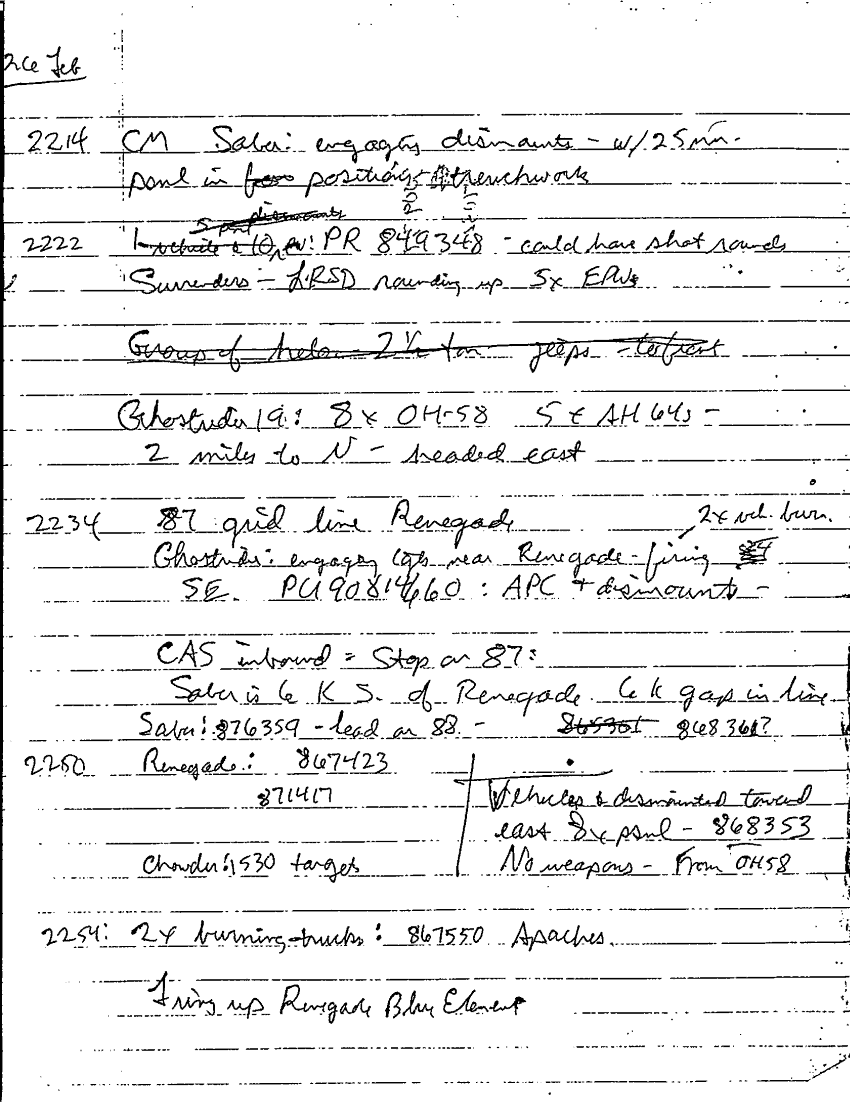 26 Feb
2214 CM Saber: engaging dismounts - w/25mm.
psnl in positions + trenchwork
5 psnl dismounts
2222 1 vehicle & PR 849348 - could have shot rounds
Surrenders - LRSD rounding up 5x EPWs
Group of helos - 2 ½ ton jeeps -
Ghostrider 19: 8x OH-58 5x AH64s -
2 miles to N - headed east
2x veh. burn.
2234 87 grid line Renegade
Ghostrider: engaging tgts near Renegade - firing
SE. PU 90814660: APC + dismounts -
CAS inbound = Stop on 87:
Saber is 6 K S. of Renegade. 6 k gap in line
Saber: 876359 - lead on 88 - 865361 868361?
2250 Renegade: 867423
871417
Vehicles & dismounted toward
east 8x psnl - 868353
Chowder: 1530 targets
No weapons - From OH58
2254: 2x burning trucks: 867550 Apaches.
Firing up Renegade Blue Element